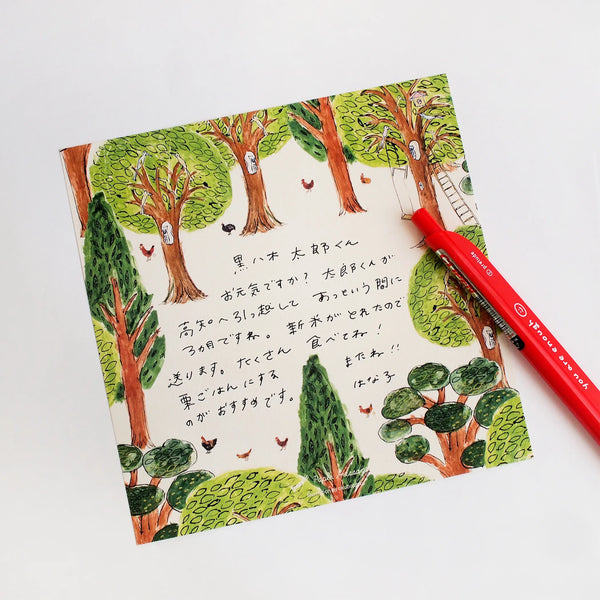 黒八木 太郎くん
お元気ですか? 太郎くんが
高知へ引っ越して あっという間に
3ヵ月ですね。 新米がとれたので
送ります。 たくさん 食べてね!
栗ごはんにする またね!!
のがおすすめです。 はな子
you are enough